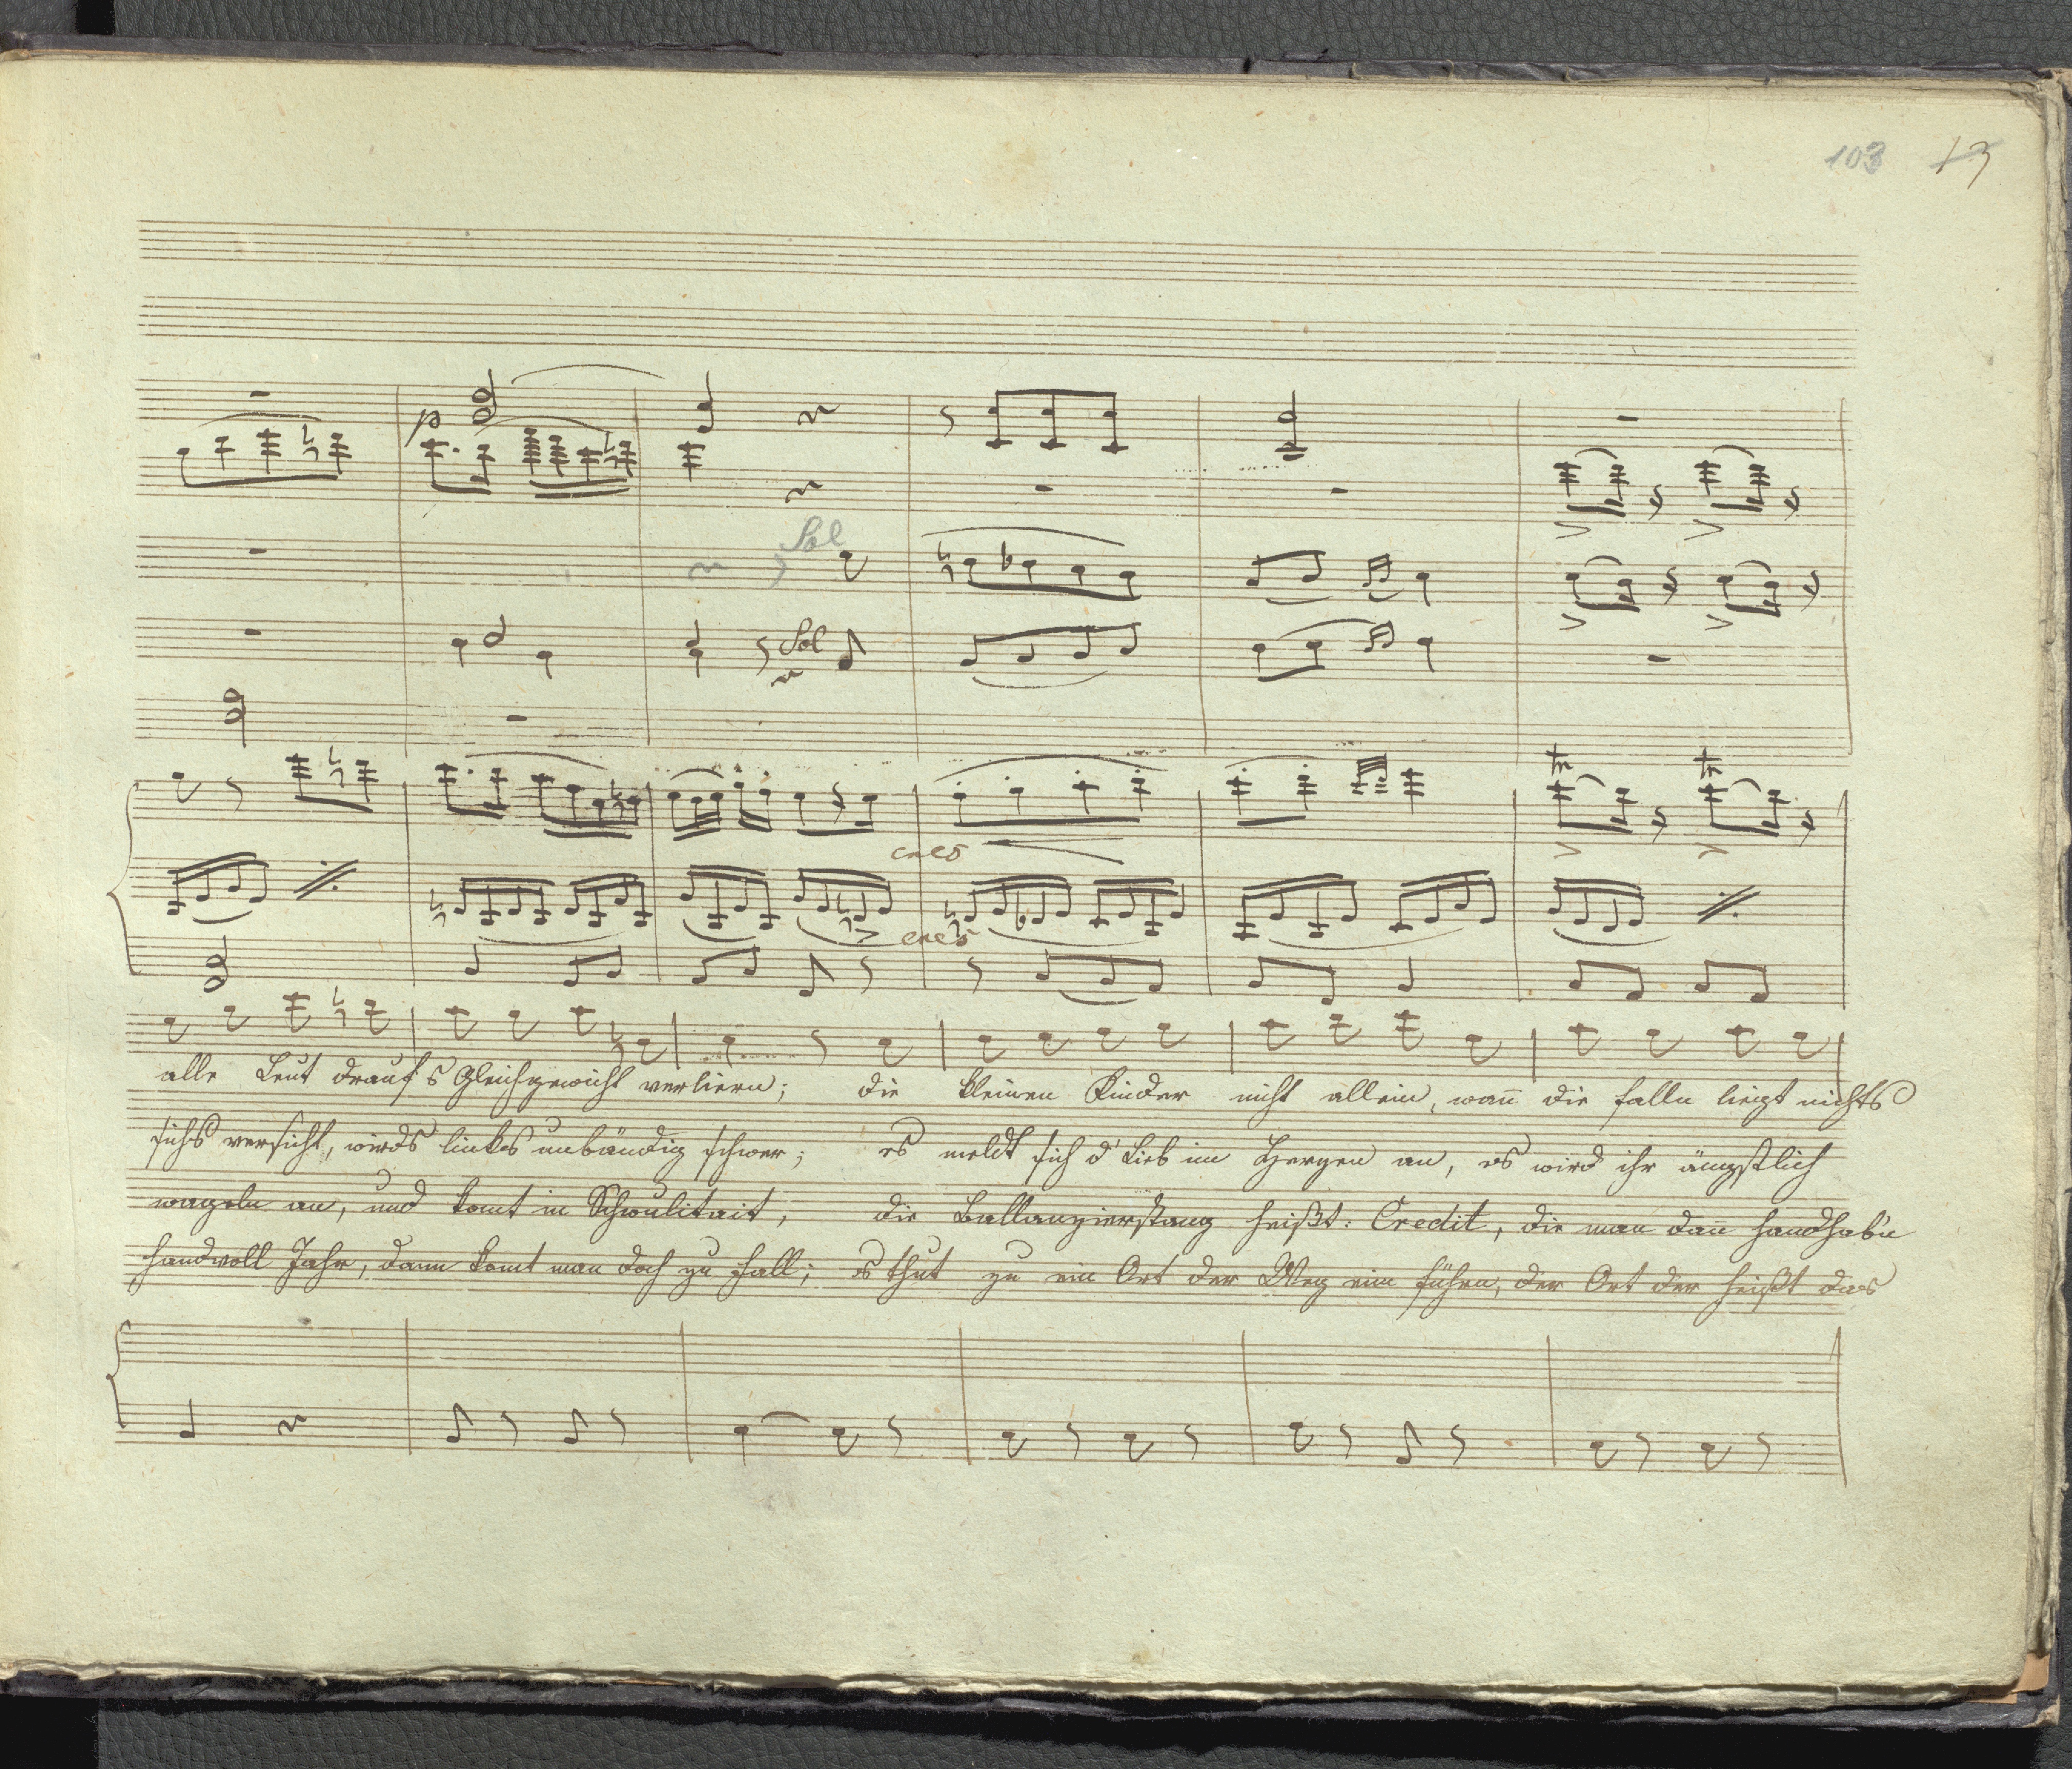 103 13
p
Sol
Sol
tr tr
cres
cres
alle Leut drauf s Gleichgewicht verliern; die kleinen Kinder nicht allein, wan̄ die falln liegt nichts
sichs versicht, wirds links unbändig schwer; es meldt sich d' Lieb im Herzen an, es wird ihr ängstlich
wageln an, und komt in Schwulitait, die Ballanzierstang heißt: Credit, die man dan̄ handhab'n
handvoll Jahr, dann komt man doch zu Fall; es thut zu ein Ort der Weg ein führn, der Ort der heißt das